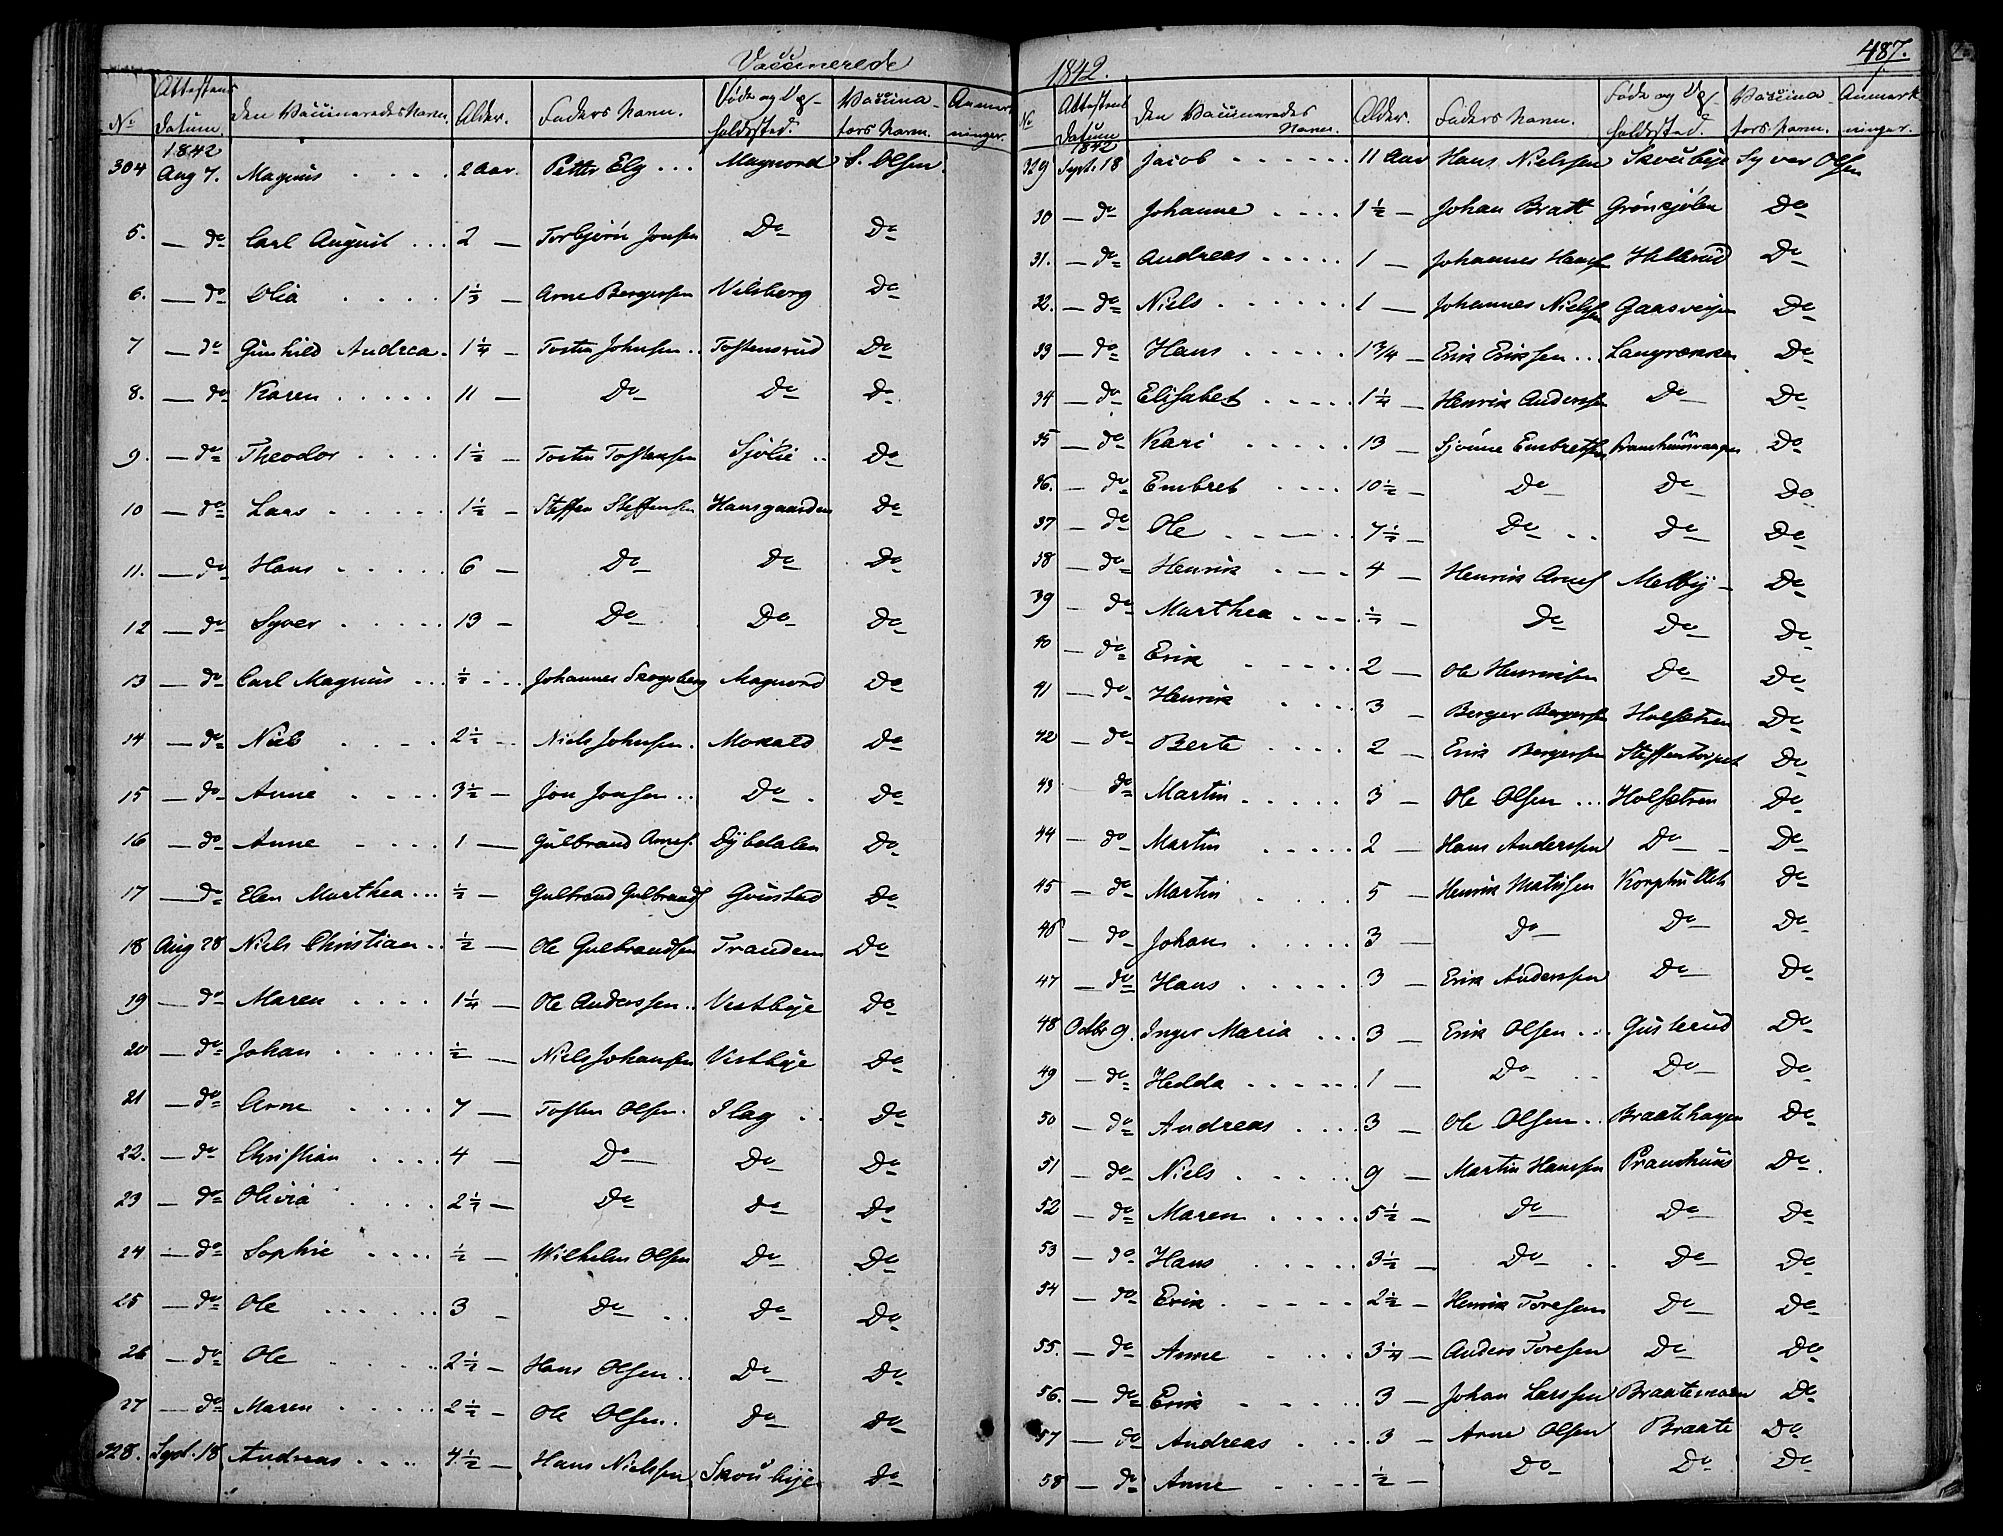 Vaccinerede
1842.
487.
No Attestens Datum. Den Vaccineredes Navn. Alder. Faders Navn. Føde og Op-holdssted. Vaccina-tors Navn. Anmærk-ninger.
1842
304 Aug 7. Magnus 2 Aar. Petter Elg Magnord S. Olsen.
5. — do Carl August 2 — Torbjørn Jonsen Do Do
6. — do Olia 1 1/3 — Arne Bergersen Vilsberg Do
7 — do Gunhild Andrea 1 1/4 — Tosten Johnsen Tostensrud Do
8. — do Karen 11 — Do Do Do
9. — do Theodor 1 1/2 — Tosten Tostensen Sjølie Do
10 — do Lars 1 1/2 — Steffen Steffensen Hansgaarden Do
11. — do Hans 6 — Do Do Do
12 — do Syver 13 — Do Do Do
13 — do Carl Magnus 1/2 Johannes Skogsberg Magnord Do
14 — do Niels 2 1/2 — Niels Johnsen Mokald Do
15 — do Anne 3 1/2 — Jon Jonsen Do Do
16 — do Anne 1 — Gulbrand Arnes. Dybdalen Do
17 — do Elen Marthea 1/2 — Gulbrand Gulbrands Gunstad Do
18 Aug 28 Niels Christian 1/2 — Ole Gulbrandsen Trandem Do
19 — do Maren 1 1/4 — Ole Anderssen Vestbye Do
20 — do Johan 1/2 — Niels Johansen Vestbye Do
21 — do Arne 7 — Tosten Olsen Ilag Do
22. — do Christian 4 — Do Do Do
23 — do Olivia 2 1/2 — Do Do Do
24 — do Sophie 1/2 — Wilhelm Olsen Do Do
25 — do Ole 3 Do Do Do
26 — do Ole 2 1/2 — Hans Olsen Do Do
27 — do Maren 2 1/2 — Ole Olsen Do Do
328. Sept. 18 Andreas 4 1/2 — Hans Nielssen Skoubye Do
No Attestens Datum Den Vaccineredes Navn. Alder. Faders Navn. Føde og Op-holdssted. Vaccina-tors Navn. Anmærk-ninger.
1842
329 Sept. 18 Jacob 11 Aar Hans Nielssen Skoubye Syver Olsen
30 — do Johanne 1 1/2 — Johan Bratt Grønsjølen Do
31. — do Andreas 1 — Johannes Hans Hillerud Do
32. — do Niels 1 — Johannes Nielsen Gaasveien Do
33 — do Hans 1 3/4 — Erik Erikssen Langrækken Do
34 — do Elisabet 1 1/4 — Henrik Anderssen Do Do
35 — do Kari 13 — Embretsen Do
36. — do Embret 10 1/2 — Do Do Do
37 — do Ole 7 1/2 — Do Do Do
38 — do Henrik 4 — Henrik Arnes Melby Do
39 — do Marthea 1/2 — Do Do Do
40 — do Erik 2 — Ole Henriksen Do Do
41 — do Henrik 3 — Berger Bergersen Holsætren Do
42 — do Berte 2 — Erik Bergersen Steffentorpet Do
43 do Martin 3 — Ole Olsen Holsetren Do
44 — do Martin 2 — Hans Anderssen Do Do
45 — do Martin 5 — Henrik Matissen Korphullet Do
46 — do Johan 3 — Do Do Do
47 — do Hans 3 Erik Anderssen Do Do
48 Octbr 9. Inger Maria 3 Erik Olsen Gusterud Do
49 — do Hedda 1 — Do Do Do
50 — do Andreas 3 — Ole Olsen Braatehagen Do
51 — do Niels 9 — Martin Hanssen Pramhuus Do
52 — do Maren 5 1/2 — Do Do Do
53 — do Hans 3 1/2 — Do Do Do
54 — do Erik 2 1/2 — Henrik Toresen Do Do
55. — do Anne 3 1/4 — Anders Toresen Do Do
56. — do Erik 3 — Johan Larssen Braatemoen Do
57 — do Andreas 3 — Arne Olsen Braate Do
58 — do Anne 1/2 — Do Do Do